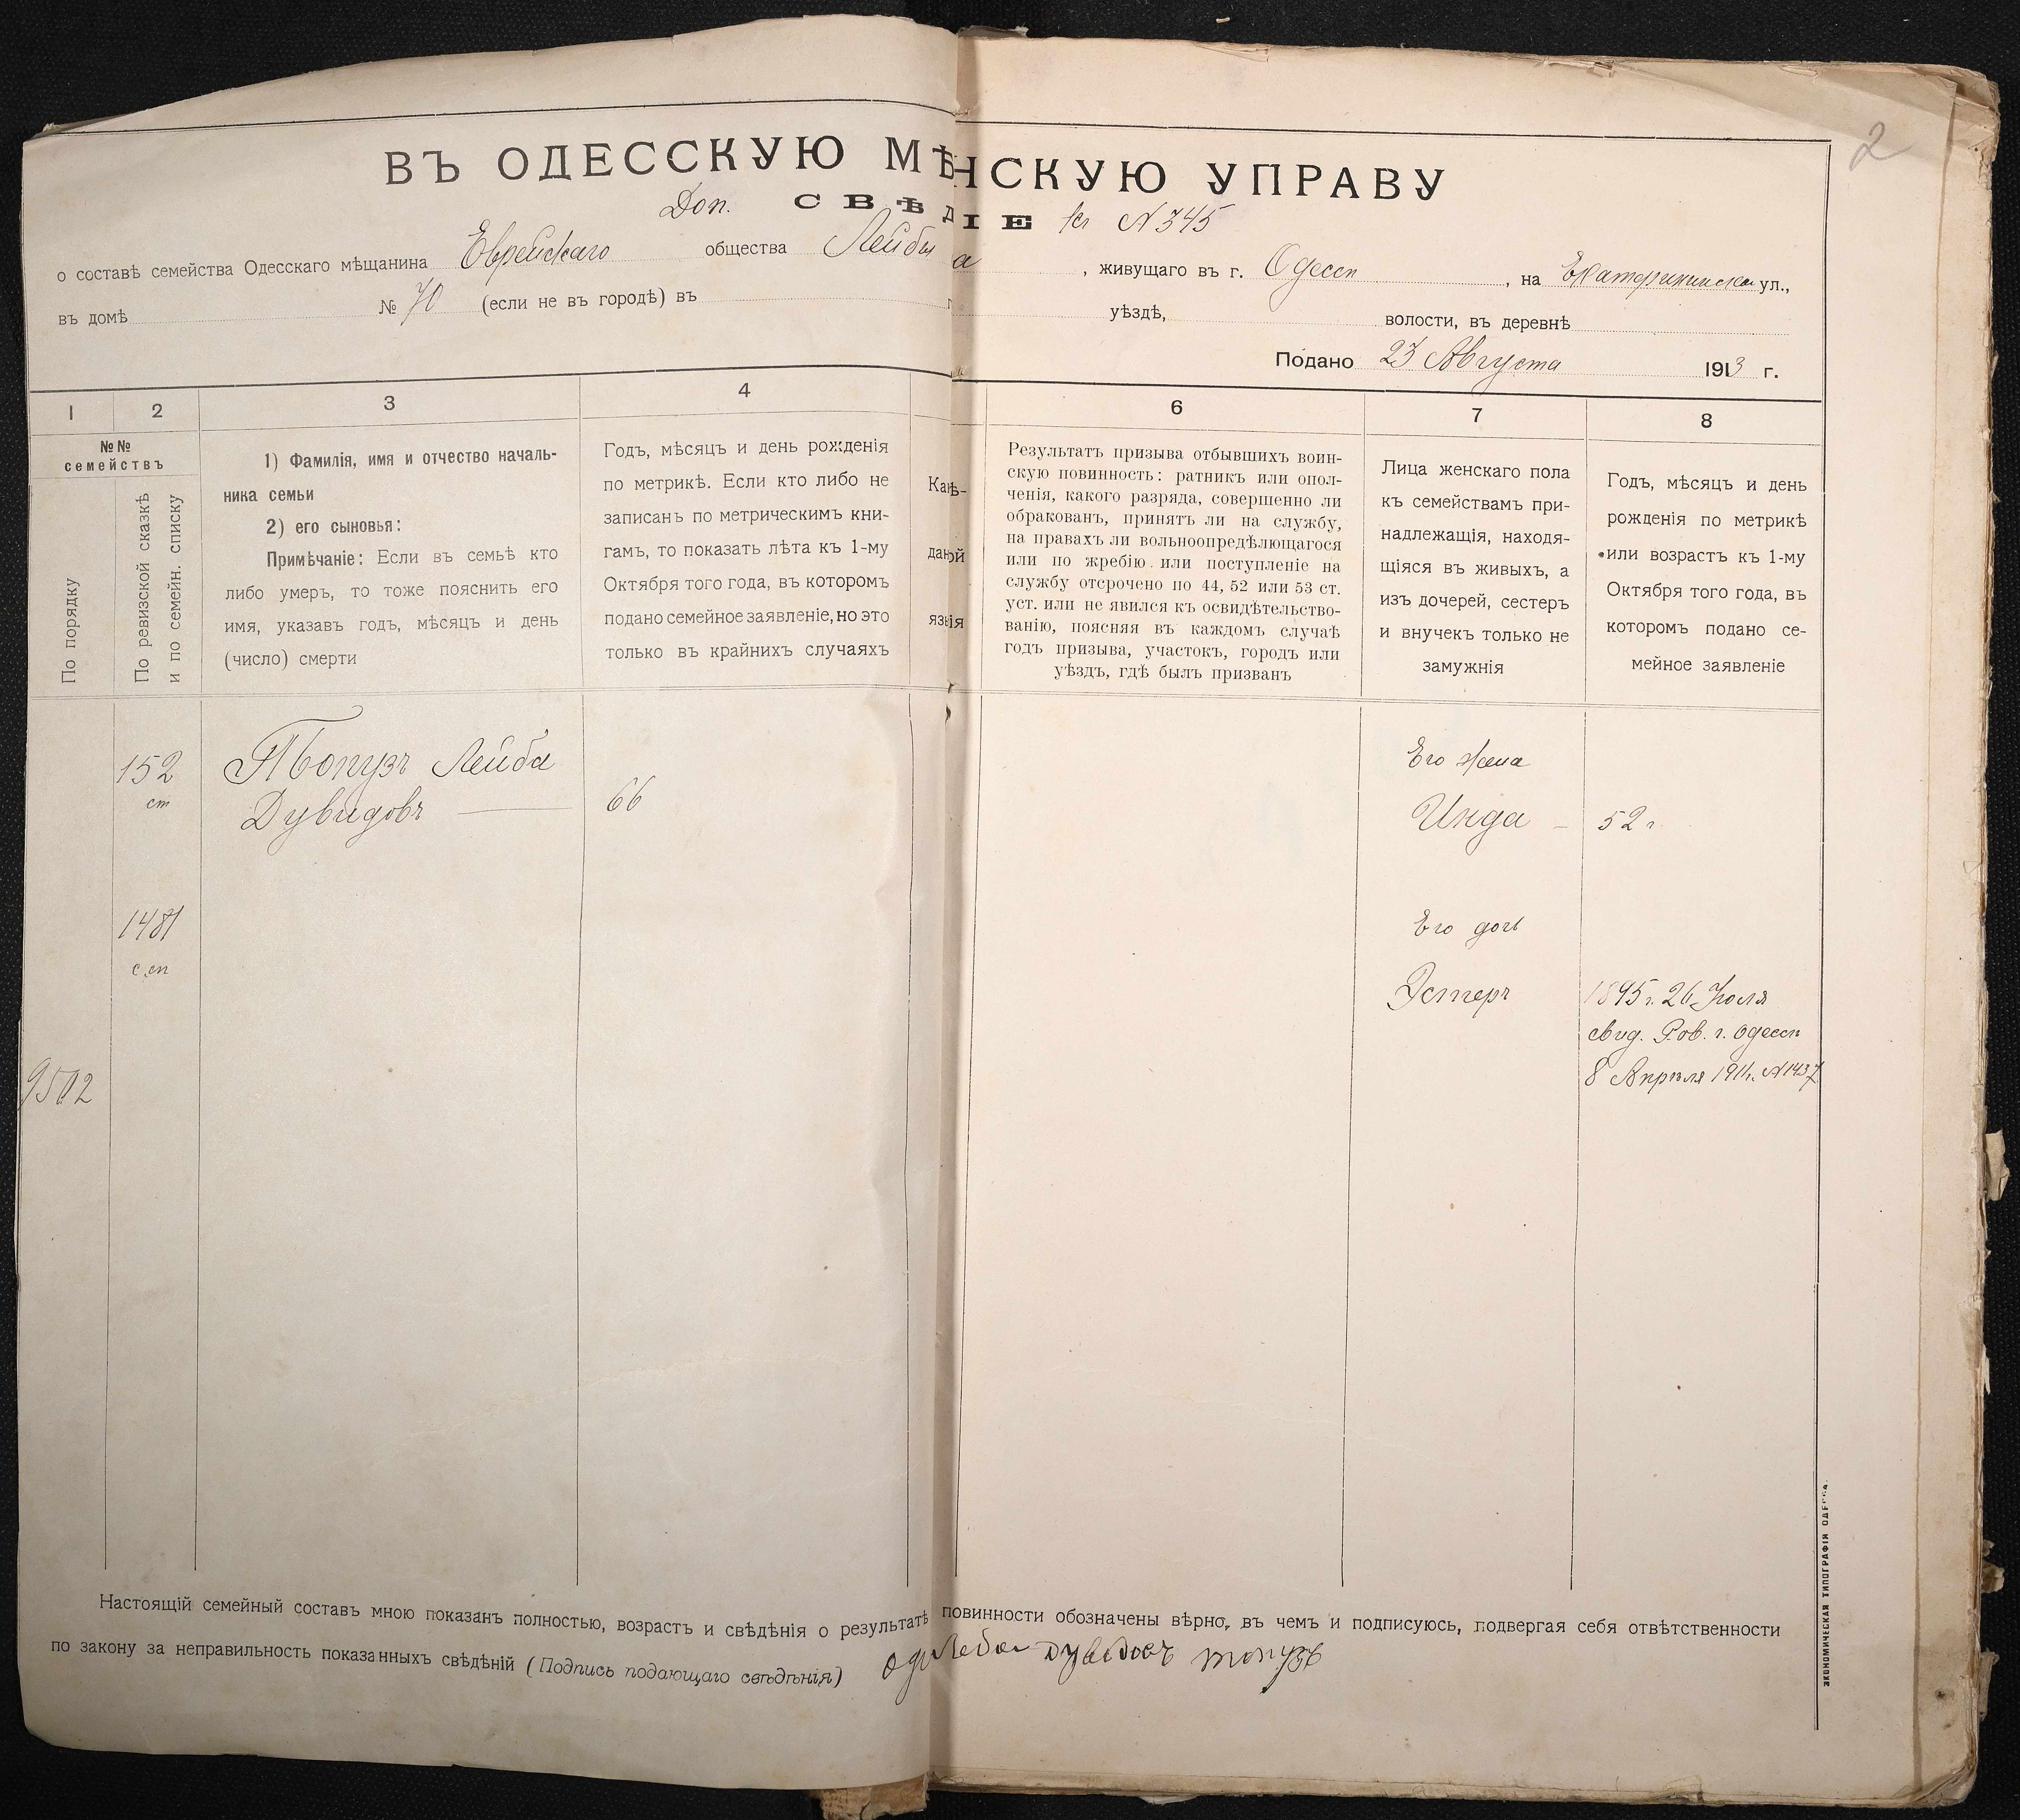 2
ВЪ ОДЕССКУЮ МѢ НСКУЮ УПРАВУ
Доп. СВѢД ІЕ къ №345
о составѣ семейства Одесскаго мѣщанина Еврейскаго общества Лейбы , живущаго въ г. Одессѣ , на ул.,
въ домѣ № 70 (если не въ городѣ) въ уѣздѣ, волости, въ деревнѣ
Подано 23 Августа 1913 г.
1 2 3 4 6 7 8
№№ семействъ
По порядку
По ревизской сказкѣ
и по семейн. списку
1) Фамилія, имя и отчество началь-
ника семьи
2) его сыновья:
Примѣчаніе: Если въ семьѣ кто
либо умеръ, то тоже пояснить его
имя, указавъ годъ, мѣсяцъ и день
(число) смерти
Годъ, мѣсяцъ и день рожденія
по метрикѣ. Если кто либо не
записанъ по метрическимъ кни-
гамъ, то показать лѣта къ 1-му
Октября того года, въ которомъ
подано семейное заявленіе, но это
только въ крайнихъ случаяхъ
Результатъ призыва отбывшихъ воин-
скую повинность: ратникъ или опол-
ченія, какого разряда, совершенно ли
обракованъ, принятъ ли на службу,
на правахъ ли вольноопредѣлющагося
или по жребію или поступленіе на
службу отсрочено по 44, 52 или 53 ст.
уст. или не явился къ освидѣтельство-
ванію, поясняя въ каждомъ случаѣ
годъ призыва, участокъ, городъ или
уѣздъ, гдѣ былъ призванъ
Лица женскаго пола
къ семействамъ при-
надлежащія, находя-
щіяся въ живыхъ, а
изъ дочерей, сестеръ
и внучекъ только не
замужнія
Годъ, мѣсяцъ и день
рожденія по метрикѣ
или возрастъ къ 1-му
Октября того года, въ
которомъ подано се-
мейное заявленіе
152
ст
Топузъ Лейба
Дувидовъ
66
Его жена
Инда — 52 г
1481
с.сп
Его дочь
Эстеръ
1895 г. 26 Іюля
свид. Р.ов. г. Одессы
8 Апрѣля 1911г. №1437
9502
Настоящій семейный составъ мною показанъ полностью, возрастъ и свѣдѣнія о результатѣ повинности обозначены вѣрно, въ чемъ и подписуюсь, подвергая себя отвѣтственности
по закону за неправильность показанныхъ свѣдѣній (Подпись подающаго свѣдѣнія) Дувидовъ топузъ
ЭКОНОМИЧЕСКАЯ ТИПОГРАФІЯ ОДЕССА.